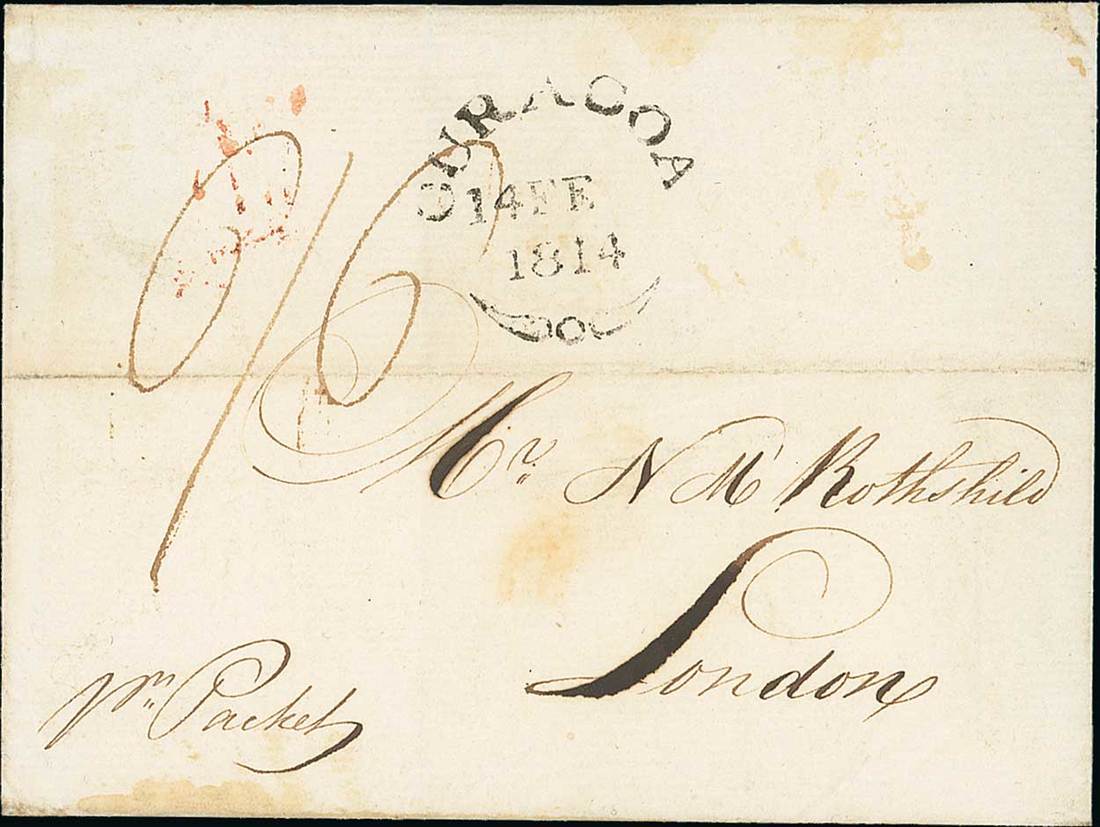 CURACOA
14 FE
1814
2/6
Mr. N M Rothshild
London
pr. Packet